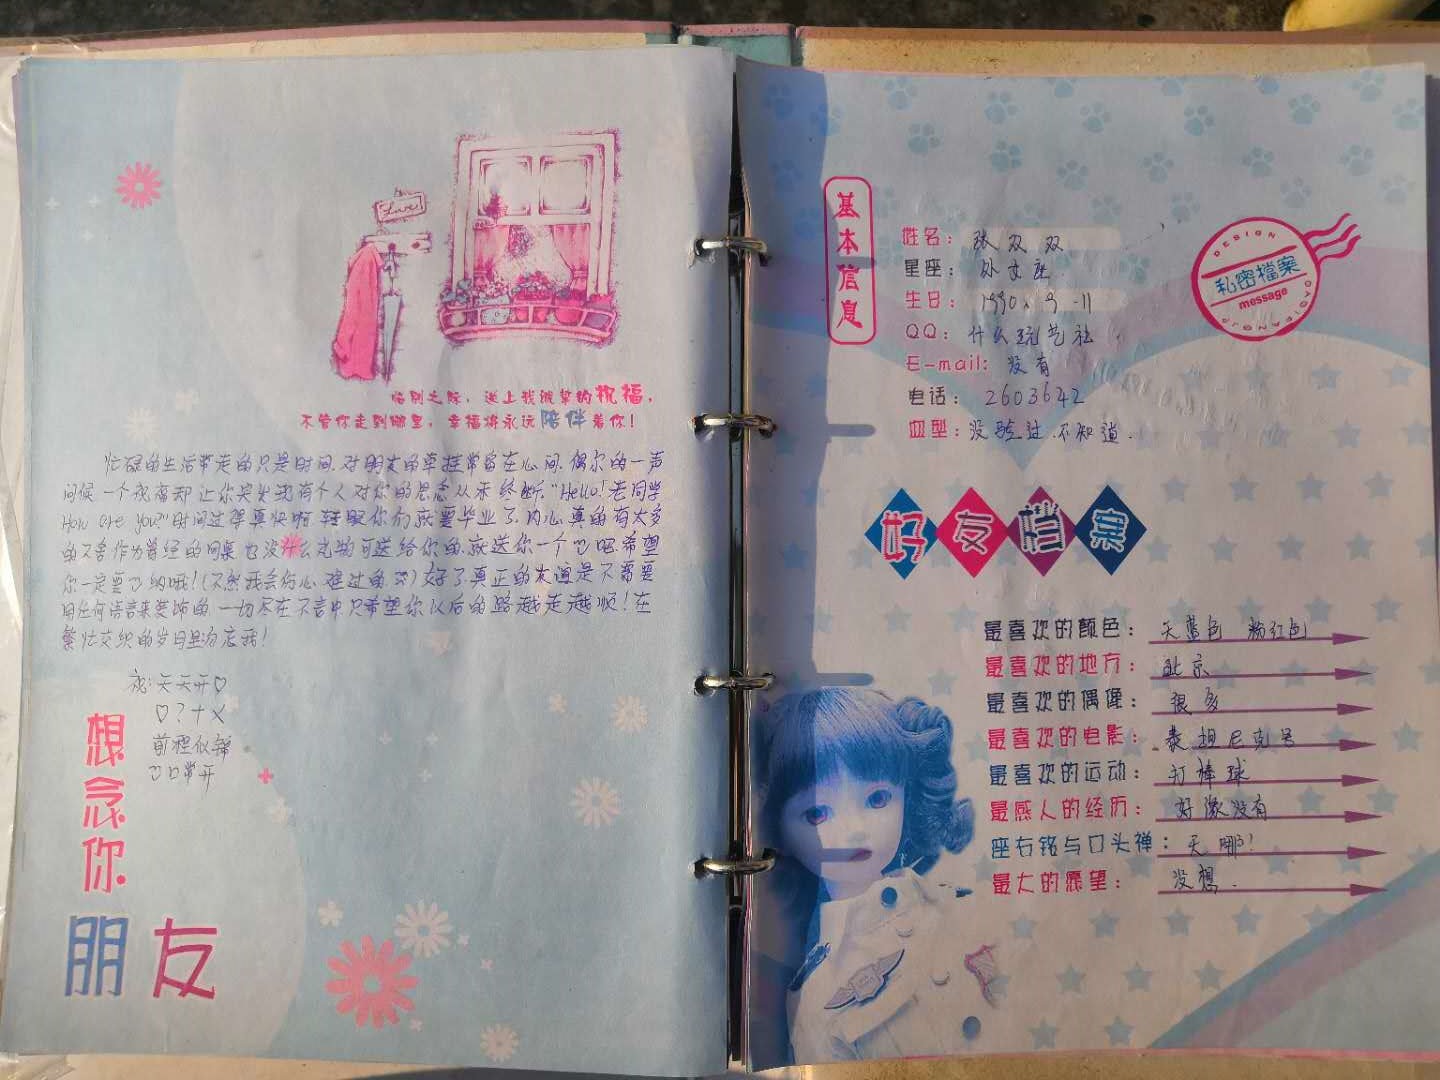 Love
临别之际，送上我诚挚的祝福，
不管你走到哪里，幸福将永远陪伴着你！
忙碌的生活带走的只是时间.对朋友的牵挂常留在心间.偶尔的一声
问候一个祝福却让你突发我有个人对你的思念从未终断."Hello!老同学
How are you?"时间过得真快啊转眼你们就要毕业了.内心真的有太多
的不舍作为曾经的同桌也没什么礼物可送给你的.就送你一个心吧.希望
你一定要心纳哦!(不然我会伤心难过的)好了真正的友谊是不需要
用任何语言来装饰的一切尽在不言中只希望你以后的路越走越顺!在
繁忙交织的岁月里勿忘我!
祝:天天开♡
♡?十乂
前程似锦
心口常开
想念你
朋友
基本信息
姓名：张双双
星座：处女座
生日：1990.9.11
QQ：什么玩艺社
E-mail：没有
电话：2603642
血型：没验过.不知道.
DESIGN
私密檔案
message
好友档案
最喜欢的颜色：天蓝色 粉红色
最喜欢的地方：北京
最喜欢的偶像：很多
最喜欢的电影：泰坦尼克号
最喜欢的运动：打棒球
最感人的经历：好像没有
座右铭与口头禅：天哪!
最大的愿望：没想.